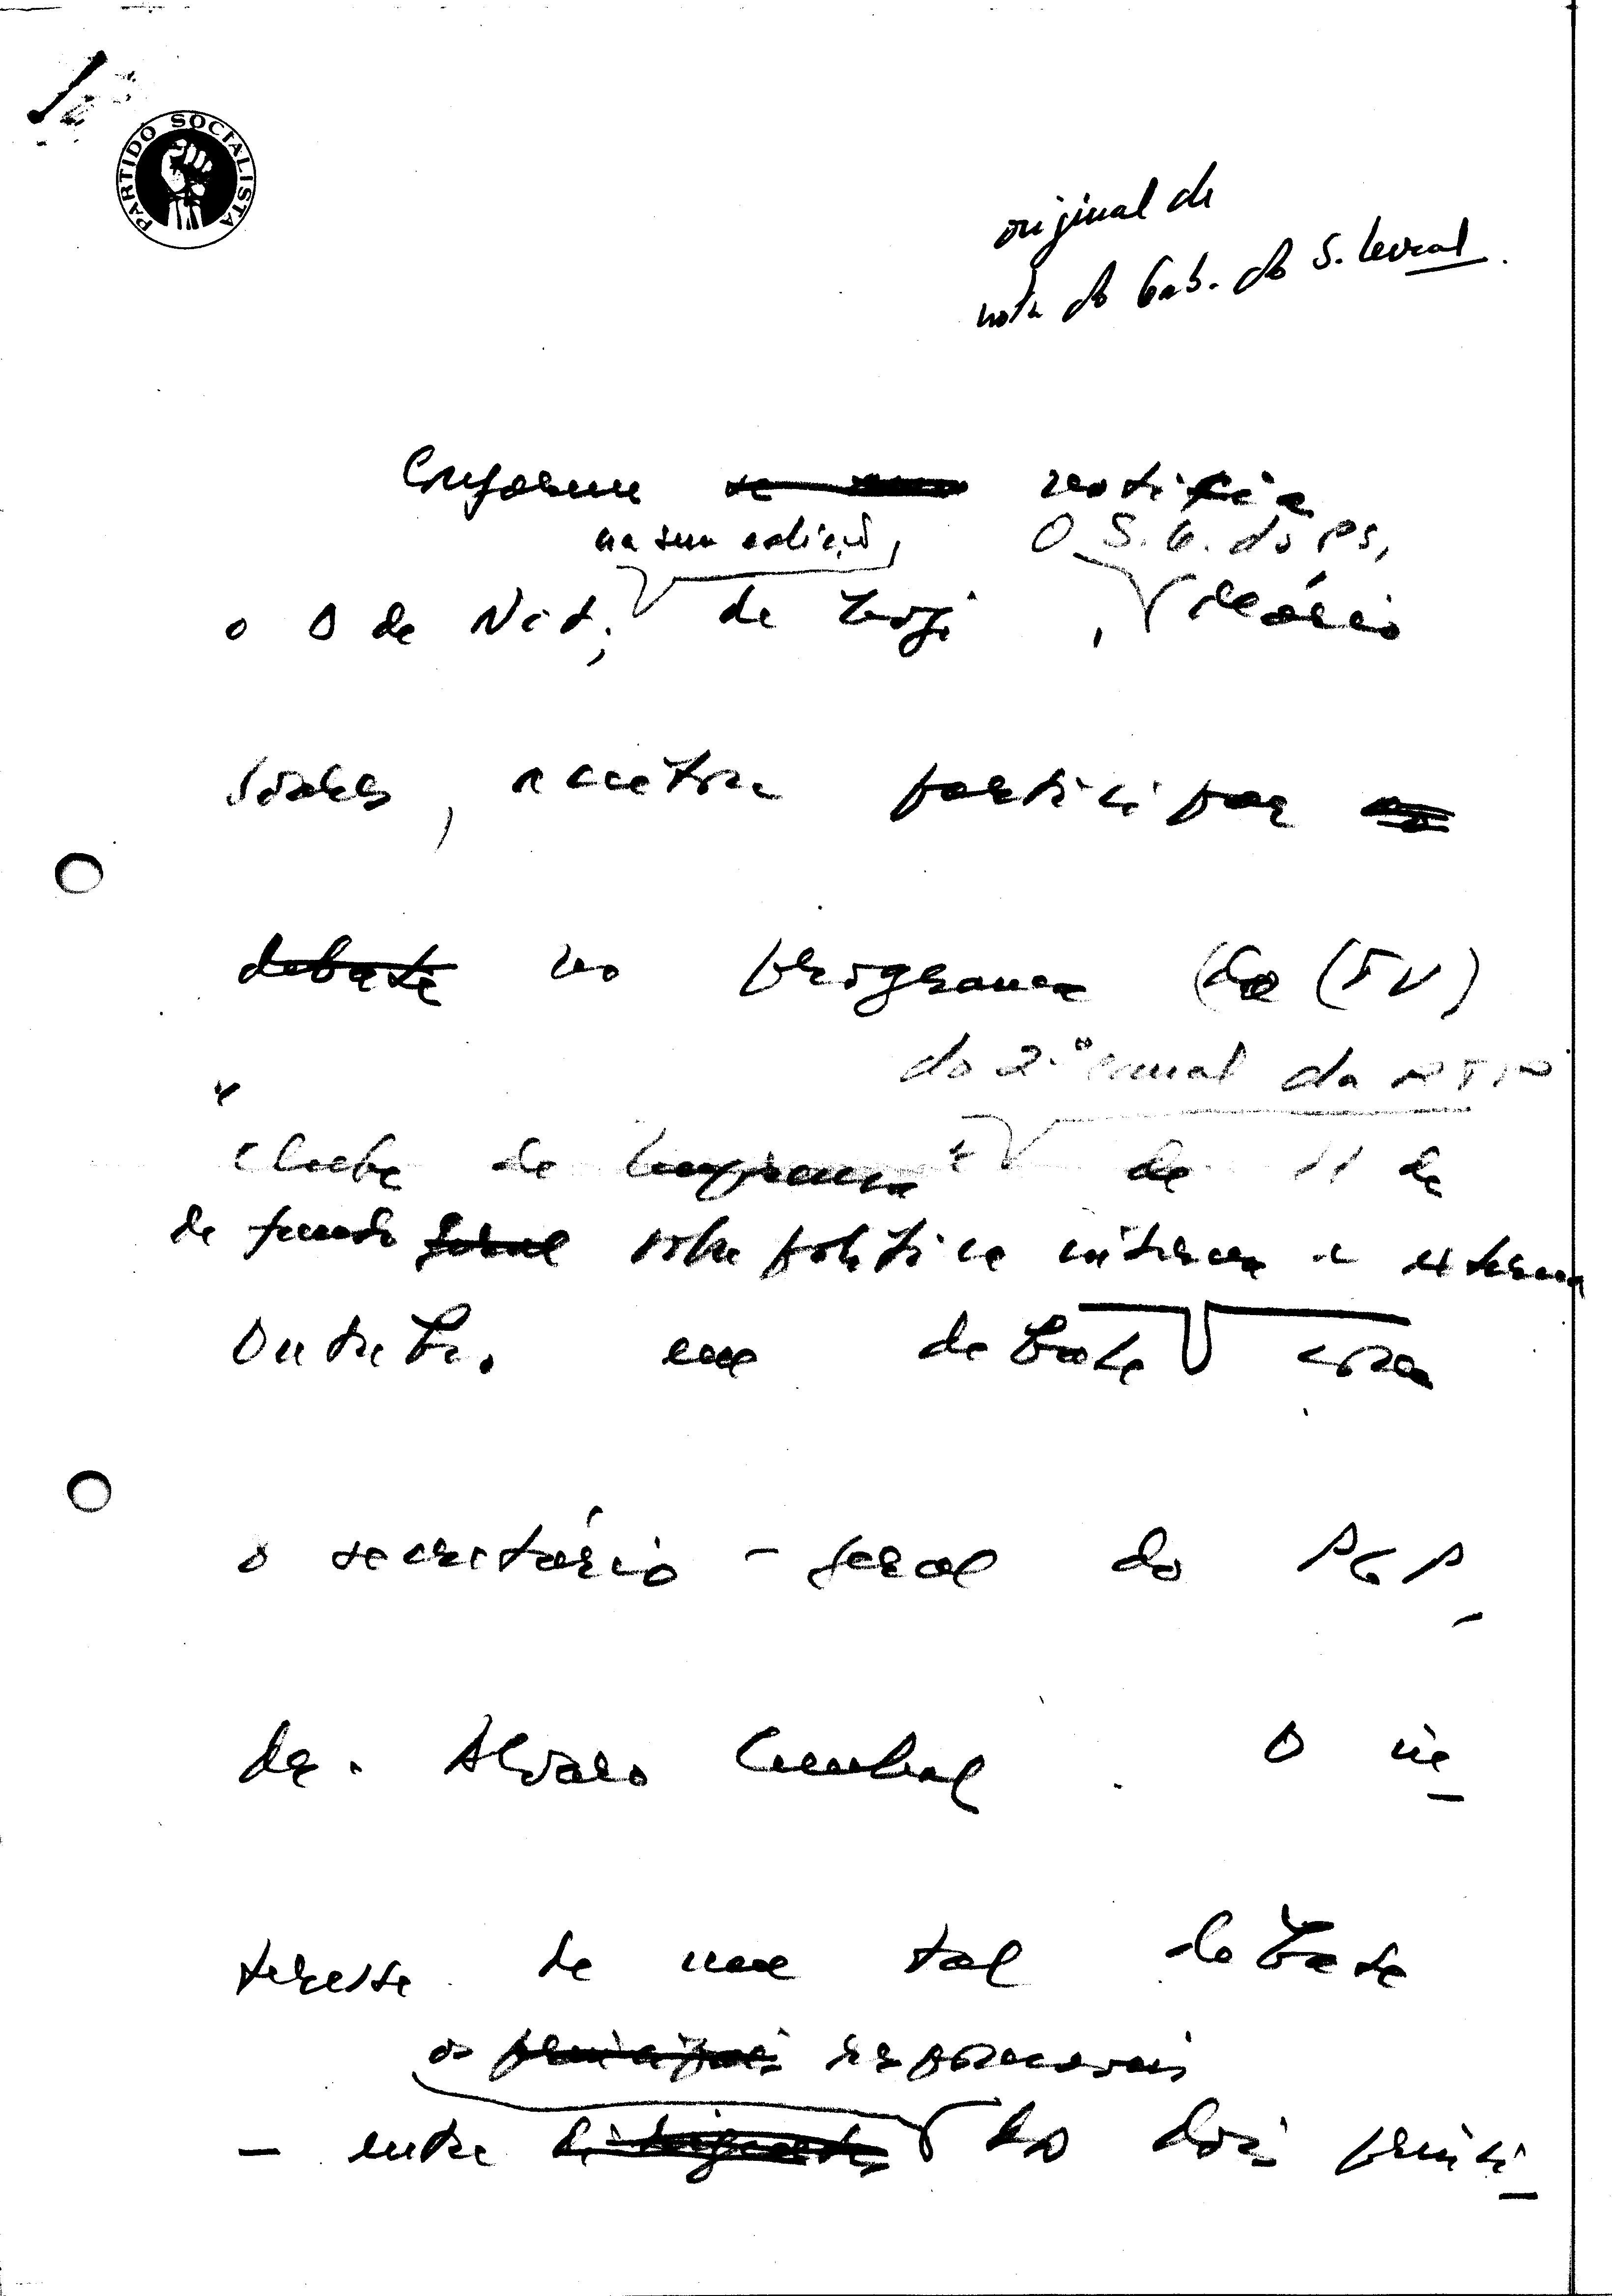 PARTIDO SOCIALISTA
original de
nota do Gab. do S. Geral.
Conforme noticia
na sua edição, O S. G. do PS,
o D de Not., de hoje, Mário
Soares, aceitou participar
debate no programa da (TV)
do 2.º canal da RTP
"Clube de Imprensa" de 11 de
de fundo geral sobre política interna e externa
Outubro em debate com
o secretário-geral do PCP
dr. Alvaro Cunhal. O in
teresse de um tal debate
os principais responsáveis
- entre dirigentes dos dois princi